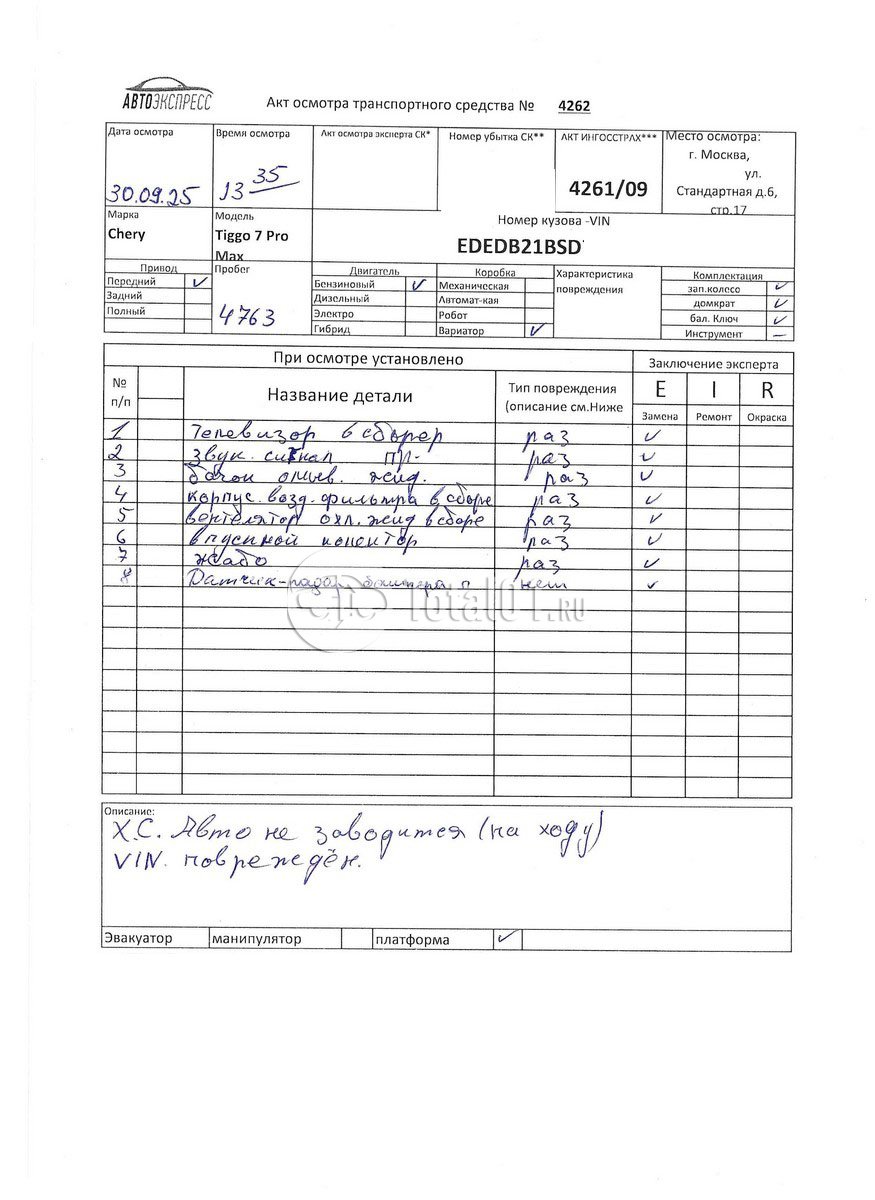 АВТОЭКСПРЕСС
Акт осмотра транспортного средства № 4262
Дата осмотра
Время осмотра
Акт осмотра эксперта СК*
Номер убытка СК**
АКТ ИНГОССТРАХ***
Место осмотра:
г. Москва,
ул.
Стандартная д.6,
стр.17
30.09.25
13 35
4261/09
Марка
Модель
Номер кузова -VIN
Chery
Tiggo 7 Pro
Max
EDEDB21BSD
Привод
Пробег
Двигатель
Коробка
Характеристика
повреждения
Комплектация
Передний ✓
Бензиновый ✓
Механическая
зап.колесо ✓
Задний
Дизельный
Автомат-кая
домкрат ✓
Полный
4763
Электро
Робот
бал. Ключ ✓
Гибрид
Вариатор ✓
Инструмент —
При осмотре установлено
Заключение эксперта
№
п/п
Название детали
Тип повреждения
(описание см.Ниже
E I R
Замена Ремонт Окраска
1 Телевизор в сборе раз ✓
2 звук. сигнал пр- раз ✓
3 бачок омыв. жид. раз ✓
4 корпус. возд. фильтра в сборе раз ✓
5 вентелятор охл. жид в сборе раз ✓
6 впускной раз ✓
7 жабо раз ✓
8 Датчик бампера п нет ✓
Total01.RU
Описание:
Х.С. Авто не заводится (на ходу)
VIN. повреждён.
Эвакуатор манипулятор платформа ✓